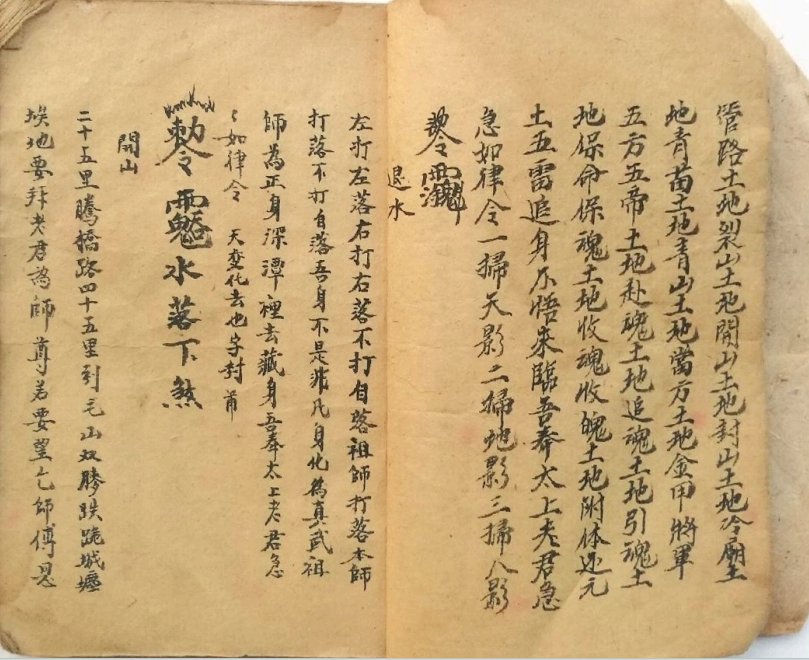 管路土地裂山土地開山土地封山土地冷廟土
地青苗土地青山土地當方土地金甲將軍
五方五帝土地赴魂土地追魂土地引魂土
地保命保魂土地收魂收魄土地附体还元
土五雷追身不悟來臨吾奉太上老君急
急如律令一掃天影二掃地影三掃人影
退水
左打左落右打右落不打自落祖師打落本師
打落不打自落吾身不是非凡身化為真武祖
師為正身深潭裡去藏身吾奉太上老君急
〻如律令 天変化去也字封
勅令 水落下煞
開山
二十五里騰橋路四十五里到毛山双膝跌跪城
埃地要拜老君為師尊若要望乞師傅恩